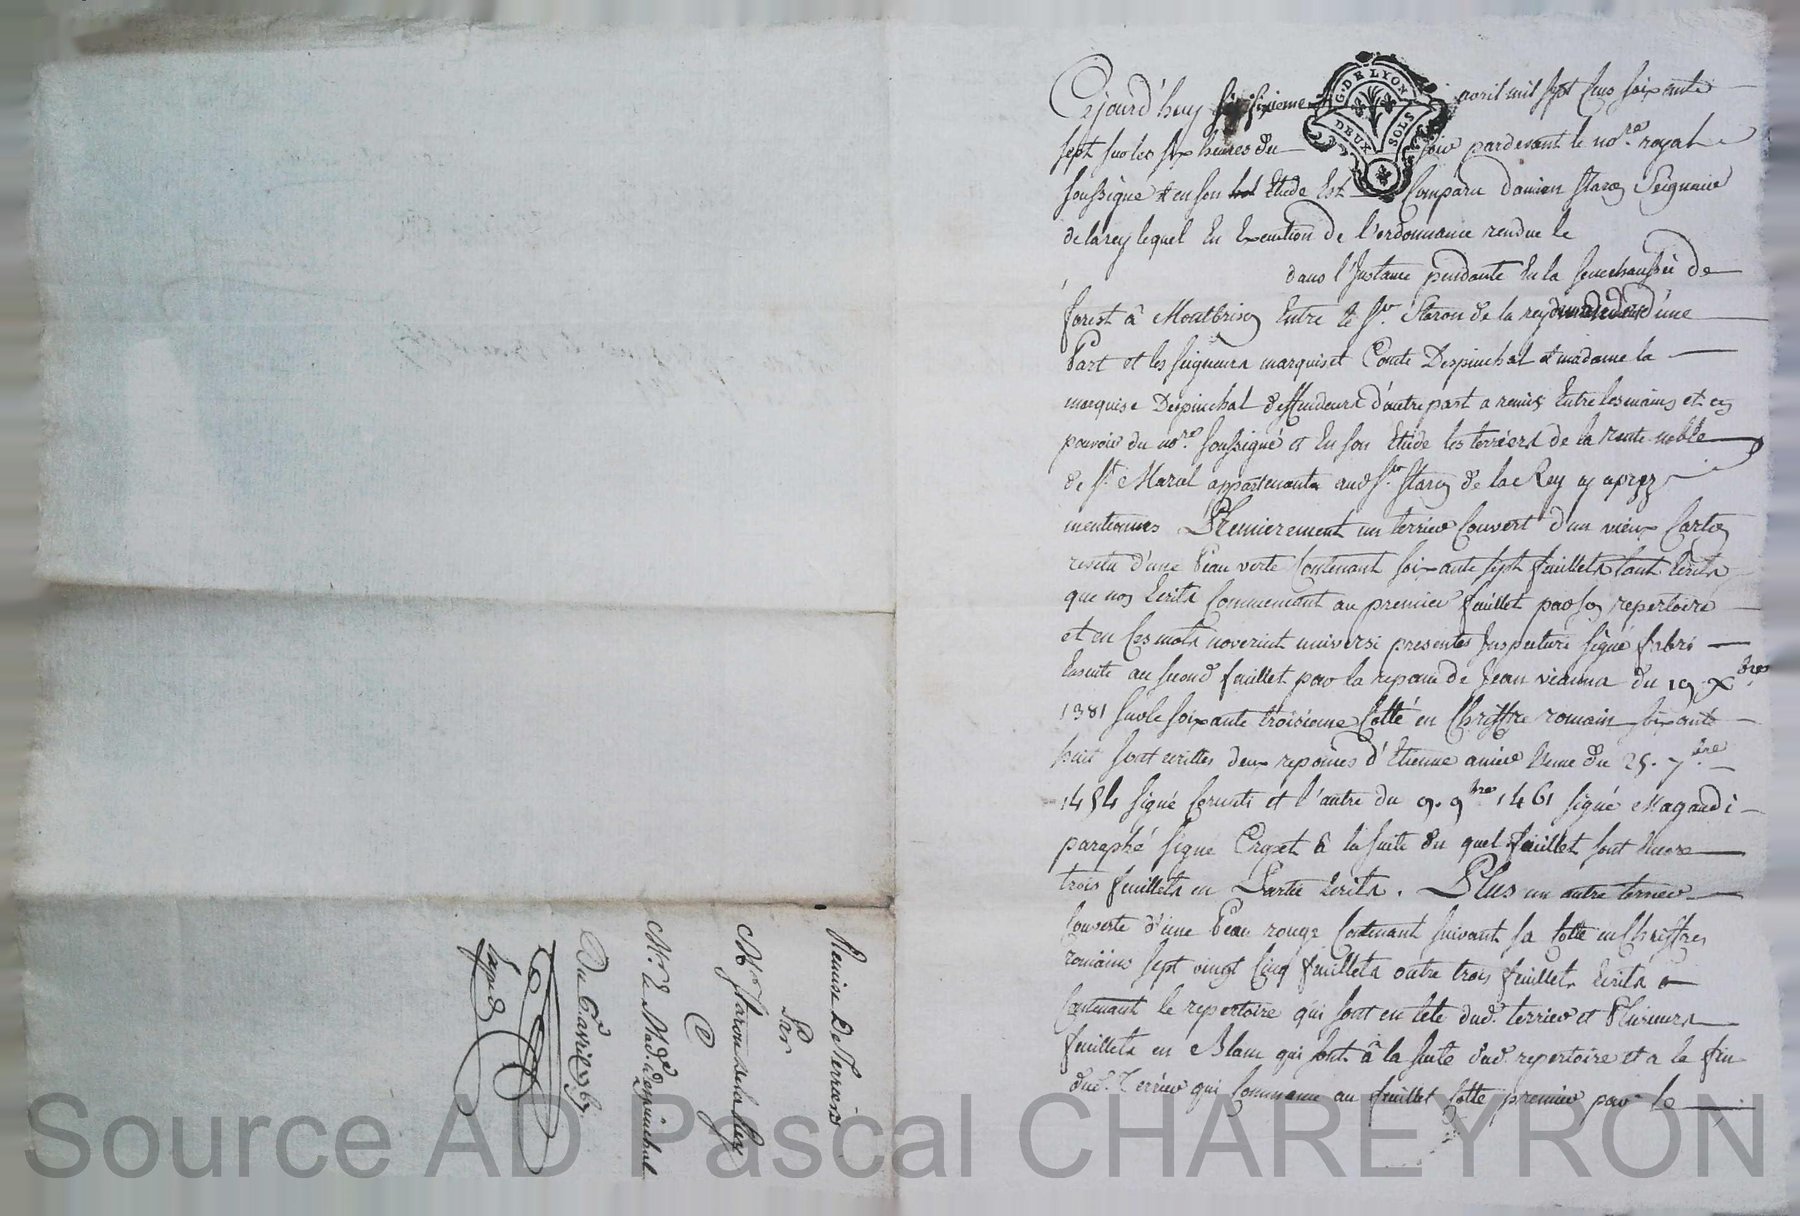 Cejourd'huy sixieme avril mil sept Cens soixante
G. DE LYON
DEUX SOLS
sept sur les six heures du soir pardevant le no.re royal
soussigné & en son Etude Est Comparu damien staron Seigneur
de la rey lequel En Execution de l'ordonnance rendue le
dans l'Instance pendante En la senechaussée de
forest à Montbrison Entre le Sr. Staron de la rey d'une
Part et les seigneurs marquis et Comte Despinchal et madame la
marquise Despinchal deffendeurs d'autre part a remis Entre les mains et en
pouvoir du no.re soussigné et En son Etude les terriers de la rente noble
de St. Marcel appartenants aud. Sr. Staron de la Rey cy aprez
mentionnés Premierement un terrier Couvert d'un vieux Carton
revetu d'une Peau verte Contenant soixante sept feuillets tant Ecrits
que non Ecrits Commencant au premier feuillet par son repertoire
et en Ces mots noverint universi presentes Inspecturi signé fabri
Ensuite au second feuillet par la reponce de Jean du 19. Xbre
1381 sur le soixante troisieme Cotté en Chriffre romain soixante
huit sont ecrittes deux reponces d'Etienne l'une du 25. 7bre
1454 signé et l'autre du 9. 9bre 1461 signé Magaudi
paraphé signé Crozet à la suite du quel feuillet sont Encore
trois feuillets en Partie Ecrits. Plus un autre terrier
Couverte d'une Peau rouge Contenant suivant sa Cotte en Chriffres
romains sept vingt Cinq feuillets outre trois feuillets Ecrits
Contenant le repertoire qui sont en tete dud. terrier et Plusieurs
feuillets en Blanc qui sont à la suite dud. repertoire et a la fin
dud. Terrier qui Commence au feuillet Cotté premier par le
Remise De Terriers
Par
Mr Staron de la Rey
@
Mr. & Mad.e d'espinchal
Du 6.e avril 67
Source AD Pascal CHAREYRON